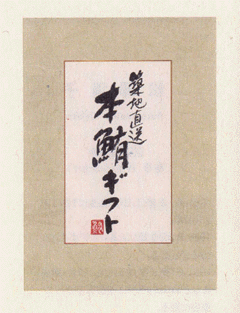 築地直送
本鮪ギフト